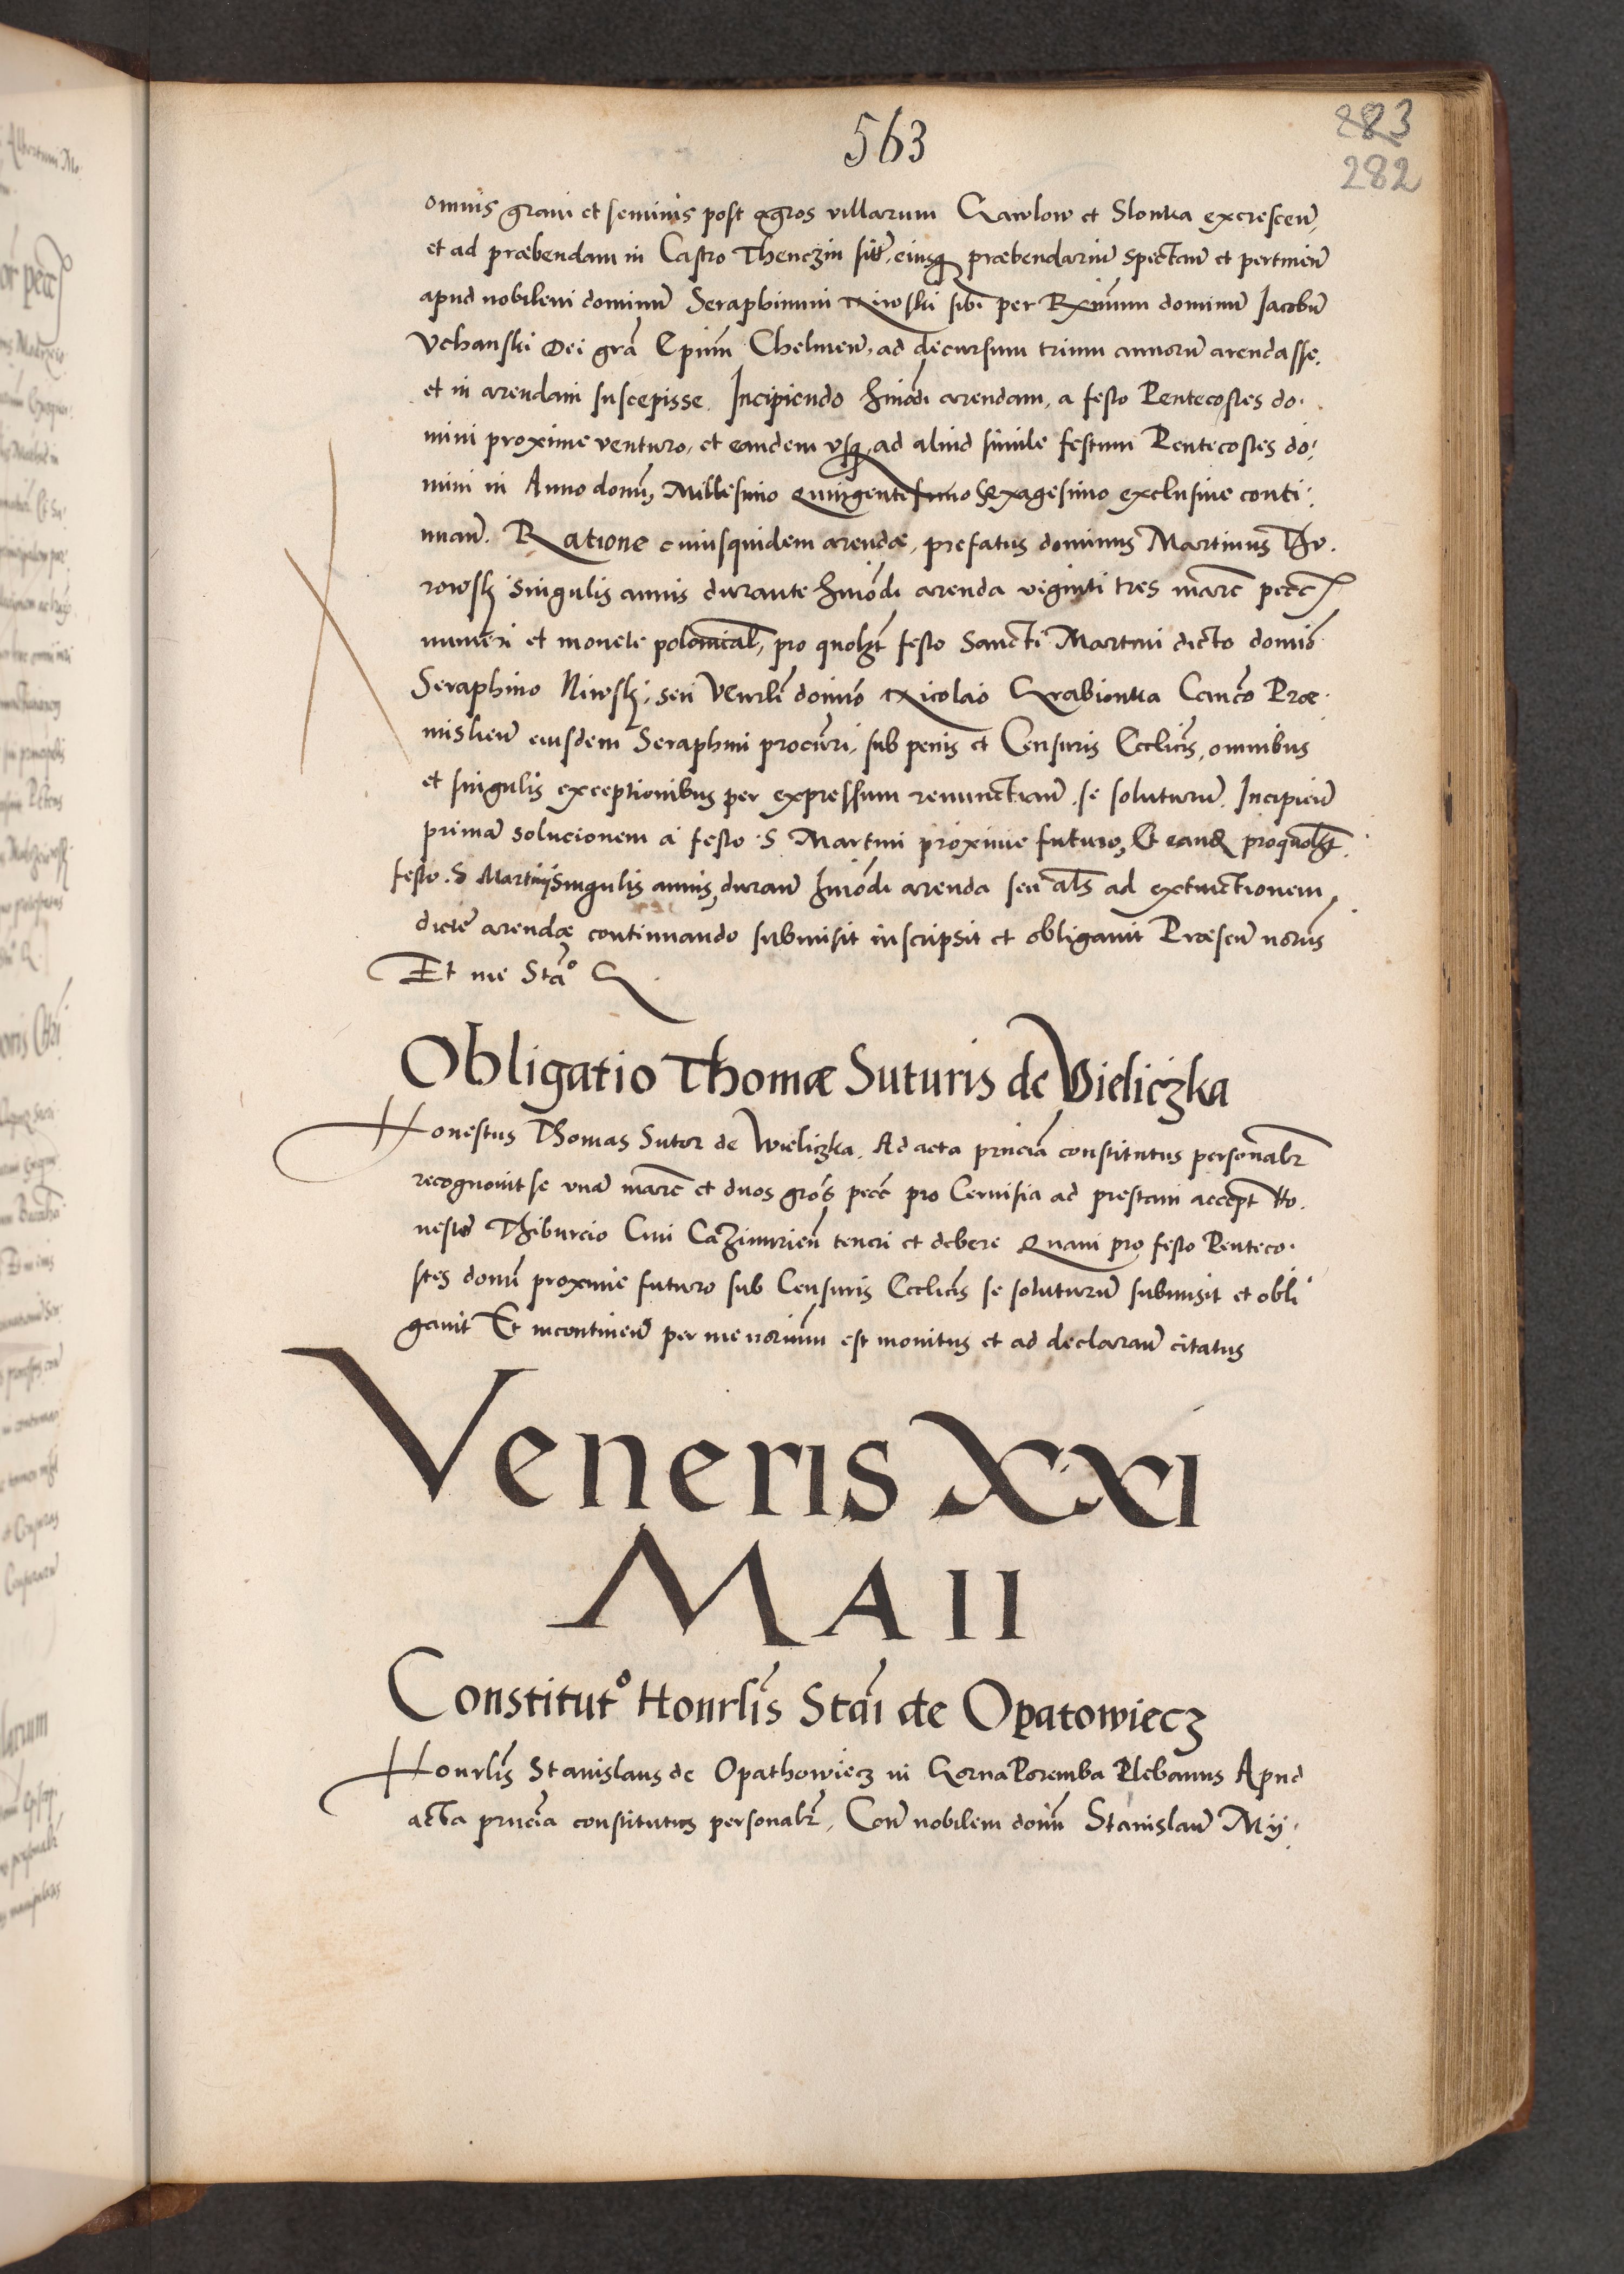 563
283
282
omnis grani et seminis post agros villarum Gawlow et Slonka excrescen̄,
et ad præbendam in Castro Thenczin sitt̄, eiusq præbendariū spectan̄ et pertinen̄
apud nobilem dominū Seraphinum Niwski sibi per Rximum dominū Jacobū
Vchanski Dei grā Epūm Chelmen̄, ad decursum trium annorū arendasse,
et in arendam suscepisse. Incipiendo hmōdi arendam, a festo Pentecostes do-
mini proxime venturo, et eandem vsq, ad aliud simile festum Pentecostes do-
mini in Anno domī, Millesimo Quingentesimo Sexagesimo exclusiue conti-
nuan̄. Ratione cuiusquidem arendæ, prefatus dominus Martinus
rowski singulis annis durante hmōdi arenda viginti tres marc̄ pecc̄
numeri et monete polonical̄, pro quolɀt festo Sancti Martini dicto domīo
Seraphino Niwski, seu Venrli domīo Nicolao Grabionka Canc̄o Præ-
mislien̄ eiusdem Seraphini procuri, sub penis et Censuris Ecclicis, omnibus
et singulis exceptionibus per expressum renunctian̄, se soluturū. Incipien̄
primā solucionem a festo S Martini proxime futuro, Et eand proquolɀt
festo S Martinj Singulis annis, duran̄ hmōdi arenda seu als̄ ad extinctionem
dictē arendæ continuando submisit inscripsit et obligauit Præsen̄ norūs
Et me Stāo &
Obligatio Thomæ Suturis de Vieliczka
Honestus Thomas Sutor de Wieliczka. Ad acta prnc̄ia constitutus personalr̄
recognouit se vnā marc̄ et duos gros̄ pecc̄ pro Ceruisia ad prestam accept Ho-
nesto Thiburcio Ciui Cazimirien̄ teneri et debere Quam pro festo Penteco-
stes domī proxime futuro sub Censuris Ecclicis se soluturū submisit et obli-
gauit Et incontinen̄ per me norium est monitus et ad declaran̄ citatus
Veneris XXI
MAII
Constituto Honrlis Stāi de Opatowiecz
Honrlis Stanislaus de Opathowiecz in Gorna Poremba Plebanus Apud
acta prnc̄ia constitutus personalr̄, Con̄ nobilem domī Stanislaū Mij-